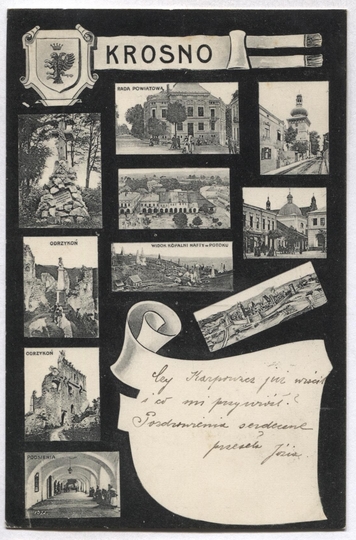 KROSNO
RADA POWIATOWA
WIDOK KOPALNI NAFTY w POTOKU
ODRZYKOŃ
ODRZYKOŃ
PODSIENIA
Czy Karpowicz już wrócił
i co mi przywiózł?
Pozdrowienia serdeczne
przesyła Józia